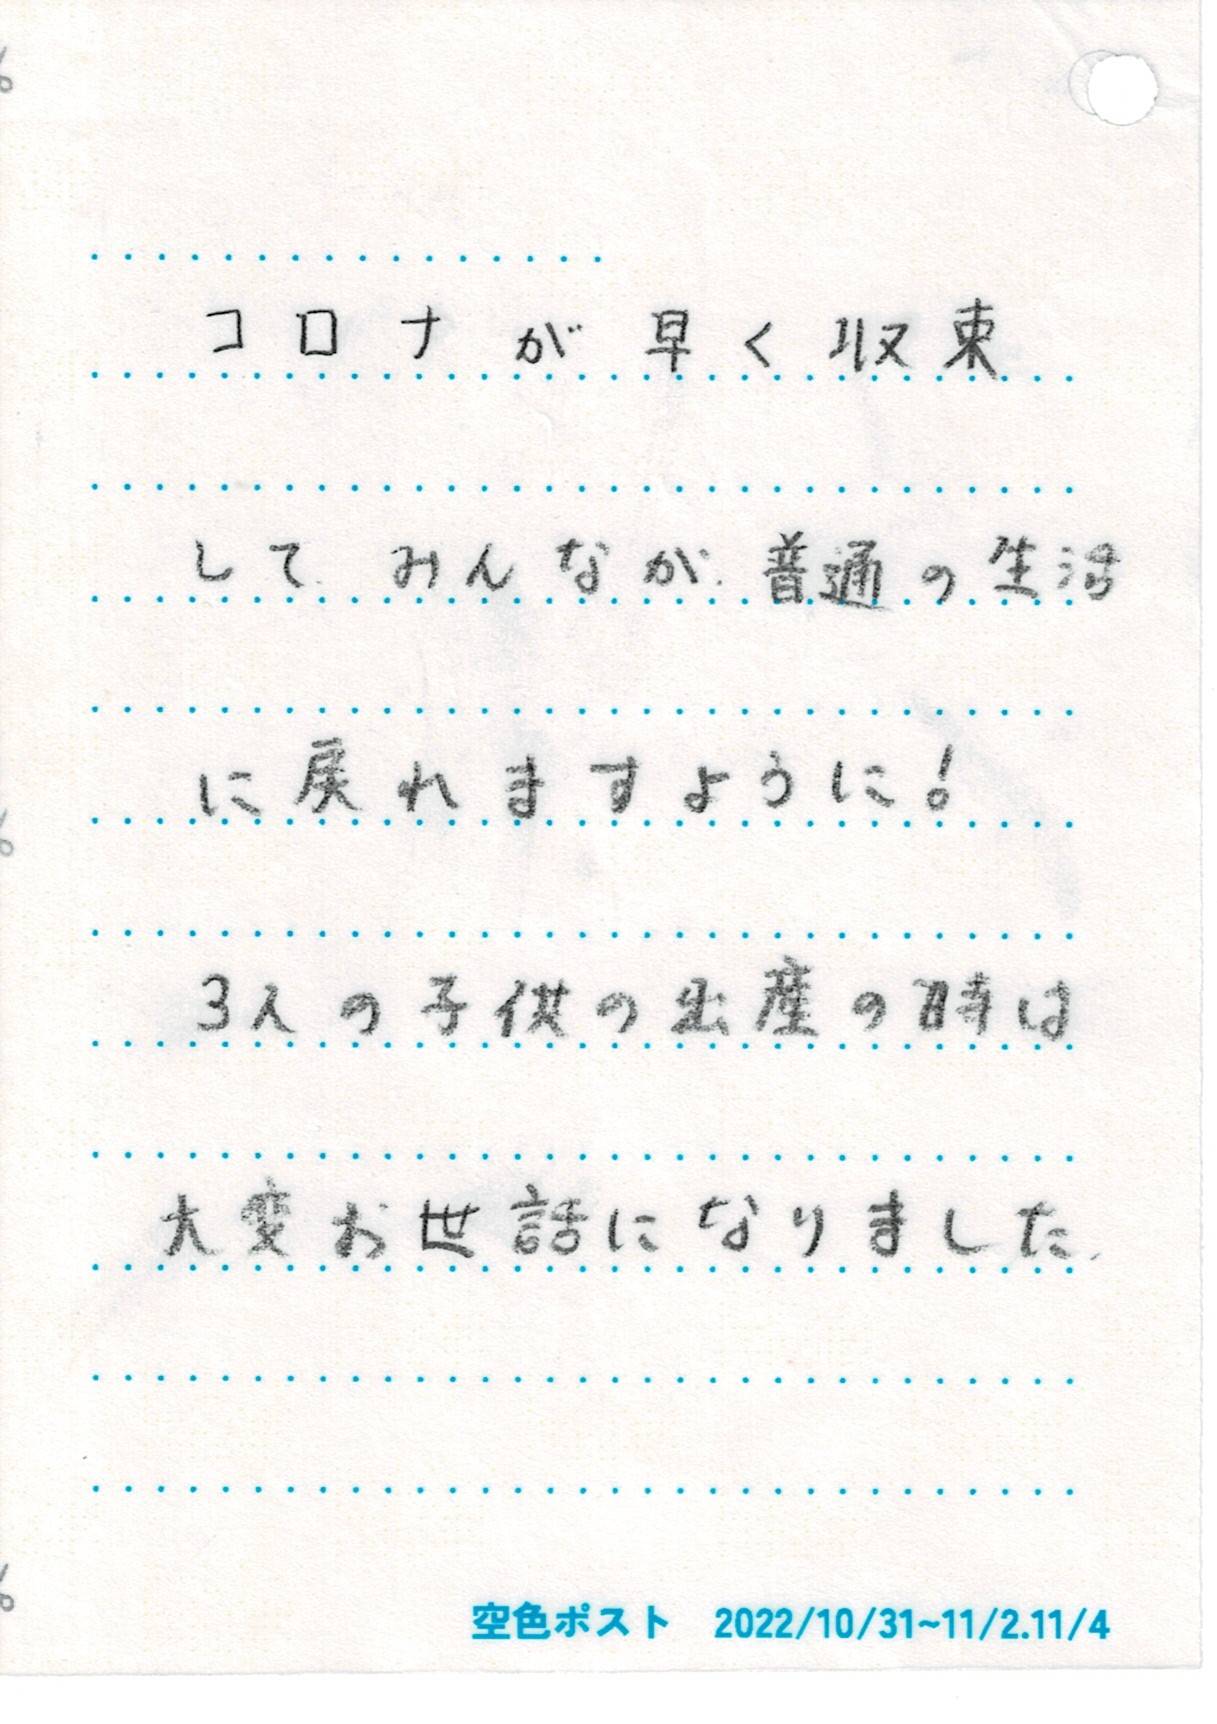 コロナが早く収束
して みんなが 普通の生活
に戻れますように!
3人の子供の出産の時は
大変お世話になりました.
空色ポスト 2022/10/31~11/2.11/4